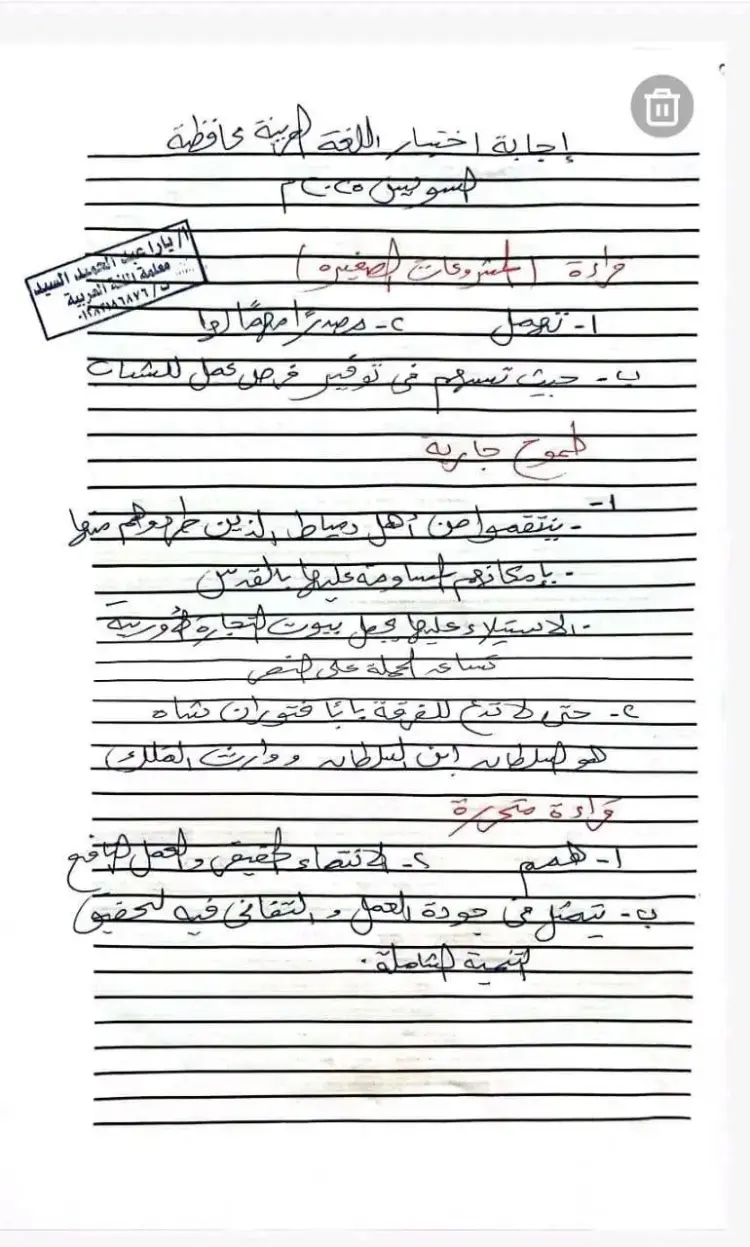 إجابة اختبار اللغة العربية محافظة
السويس ٢٠٢٥ م
أ/ يارا عبد الحميد السيد
معلمة اللغة العربية
قراءة (المشروعات الصغيرة)
١- تهمل ٢- مصدرًا مهمًا لها
ب- حيث تسهم فى توفير فرص عمل للشباب
طموح جارية
١-
- ينتقموا من أهل دمياط الذين طردوهم منها
- بإمكانهم المساومة عليها بالقدس
- الاستيلاء عليها يجعل بيوت التجارة الأوربية
تساعد الحملة على النصر
٢- حتى لا تدع للفرقة بابًا فتوران شاه
هو السلطان ابن السلطان ووارث الملك
قراءة متحررة
١- همم ٢- الانتماء الحقيقى والعمل النافع
ب- تتمثل فى جودة العمل والتفانى فيه لتحقيق
التنمية الشاملة.